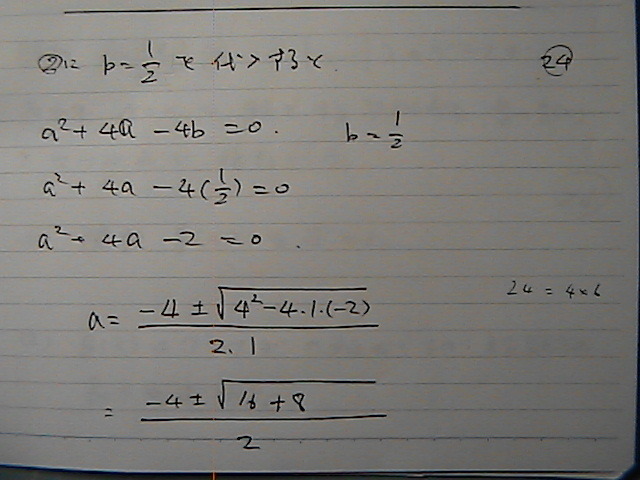 ②に b=1/2 を代入すると ㉔
a²+4a-4b=0. b=1/2
a²+4a-4(1/2)=0
a²+4a-2=0.
24=4×6
a=(-4±√(4²-4.1.(-2)))/(2.1)
=(-4±√(16+8))/2